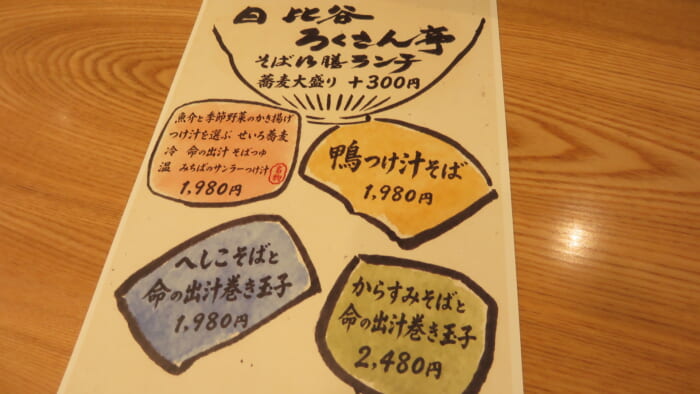 日比谷
ろくさん亭
そば御膳ランチ
蕎麦大盛り +300円
魚介と季節野菜のかき揚げ
つけ汁を選ぶ せいろ蕎麦
冷 命の出汁 そばつゆ
温 みちばのサンラーつけ汁
名物
1,980円
鴨つけ汁そば
1,980円
へしこそばと
命の出汁巻き玉子
1,980円
からすみそばと
命の出汁巻き玉子
2,480円